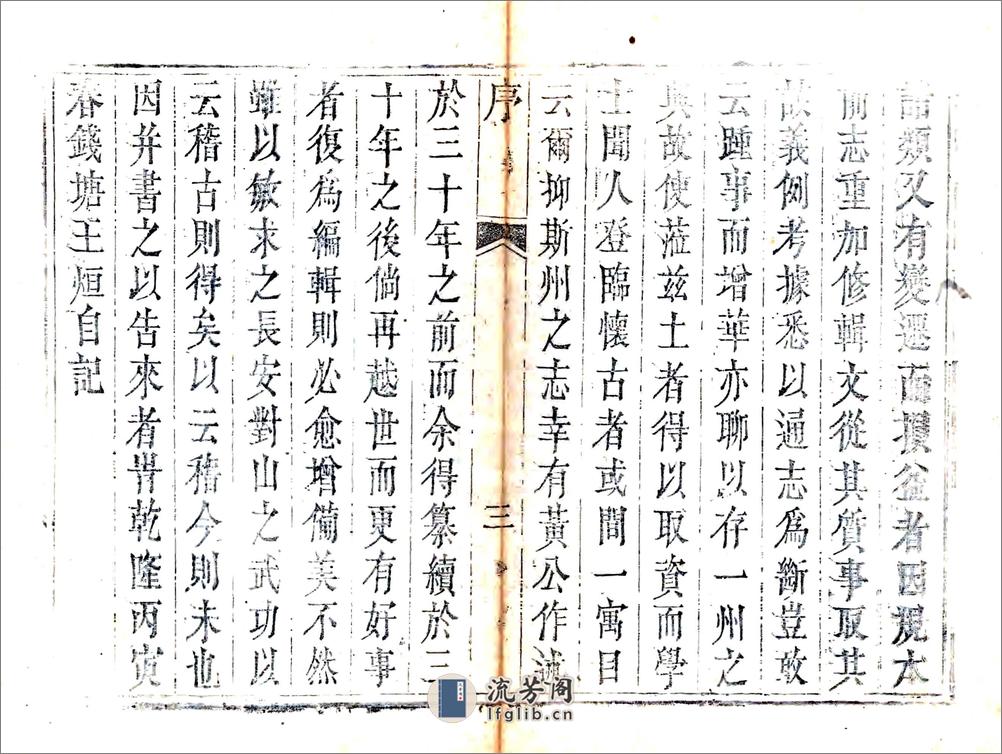 諸類又有變遷而攟益者因規本
前志重加修輯文從其質事取其
故義例考據悉以通志爲斷豈敢
云踵事而增華亦聊以存一州之
典故使蒞兹土者得以取資而學
士聞人登臨懷古者或間一寓目
云爾抑斯州之志幸有黃公作述
序
三
於三十年之前而余得纂續於三
十年之後倘再越世而更有好事
者復爲編輯則必愈增備美不然
雖以敏求之長安對山之武功以
云稽古則得矣以云稽今則未也
因并書之以告來者旹乾隆丙寅
春錢塘王烜自記
流芳阁
lfglib.cn